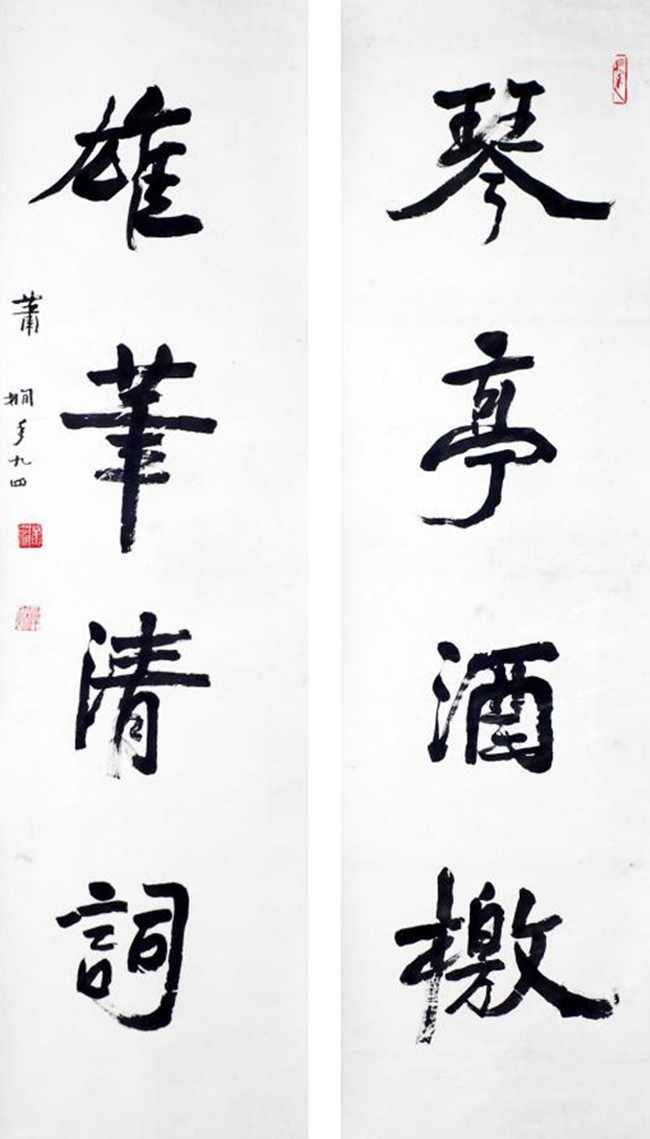 琴亭酒檄
雄筆清詞
蕭嫻年九四